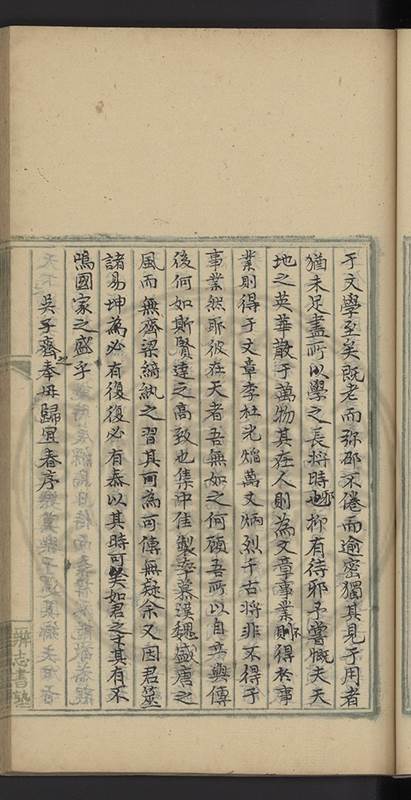 于文學至矣既老而弥邵不倦而逾密獨其見于用者
猶未足盡所以學之長將時也抑有待邪予嘗慨夫天
地之英華散于萬物其在人則為文章事業則不得於事
業則得于文章李杜光熖萬丈炳烈千古將非不得于
事業然耶彼在天者吾無如之何顧吾所以自立與傳
後何如斯賢達之高致也集中佳製率慕漢魏盛唐之
風而無齊梁綺紈之習其可為可傳無疑余又因君筮
諸易坤為必有復復必有泰以其時可矣如君之才其有不
鳴國家之盛乎
吳子齋奉母歸宜春序
辨志書塾